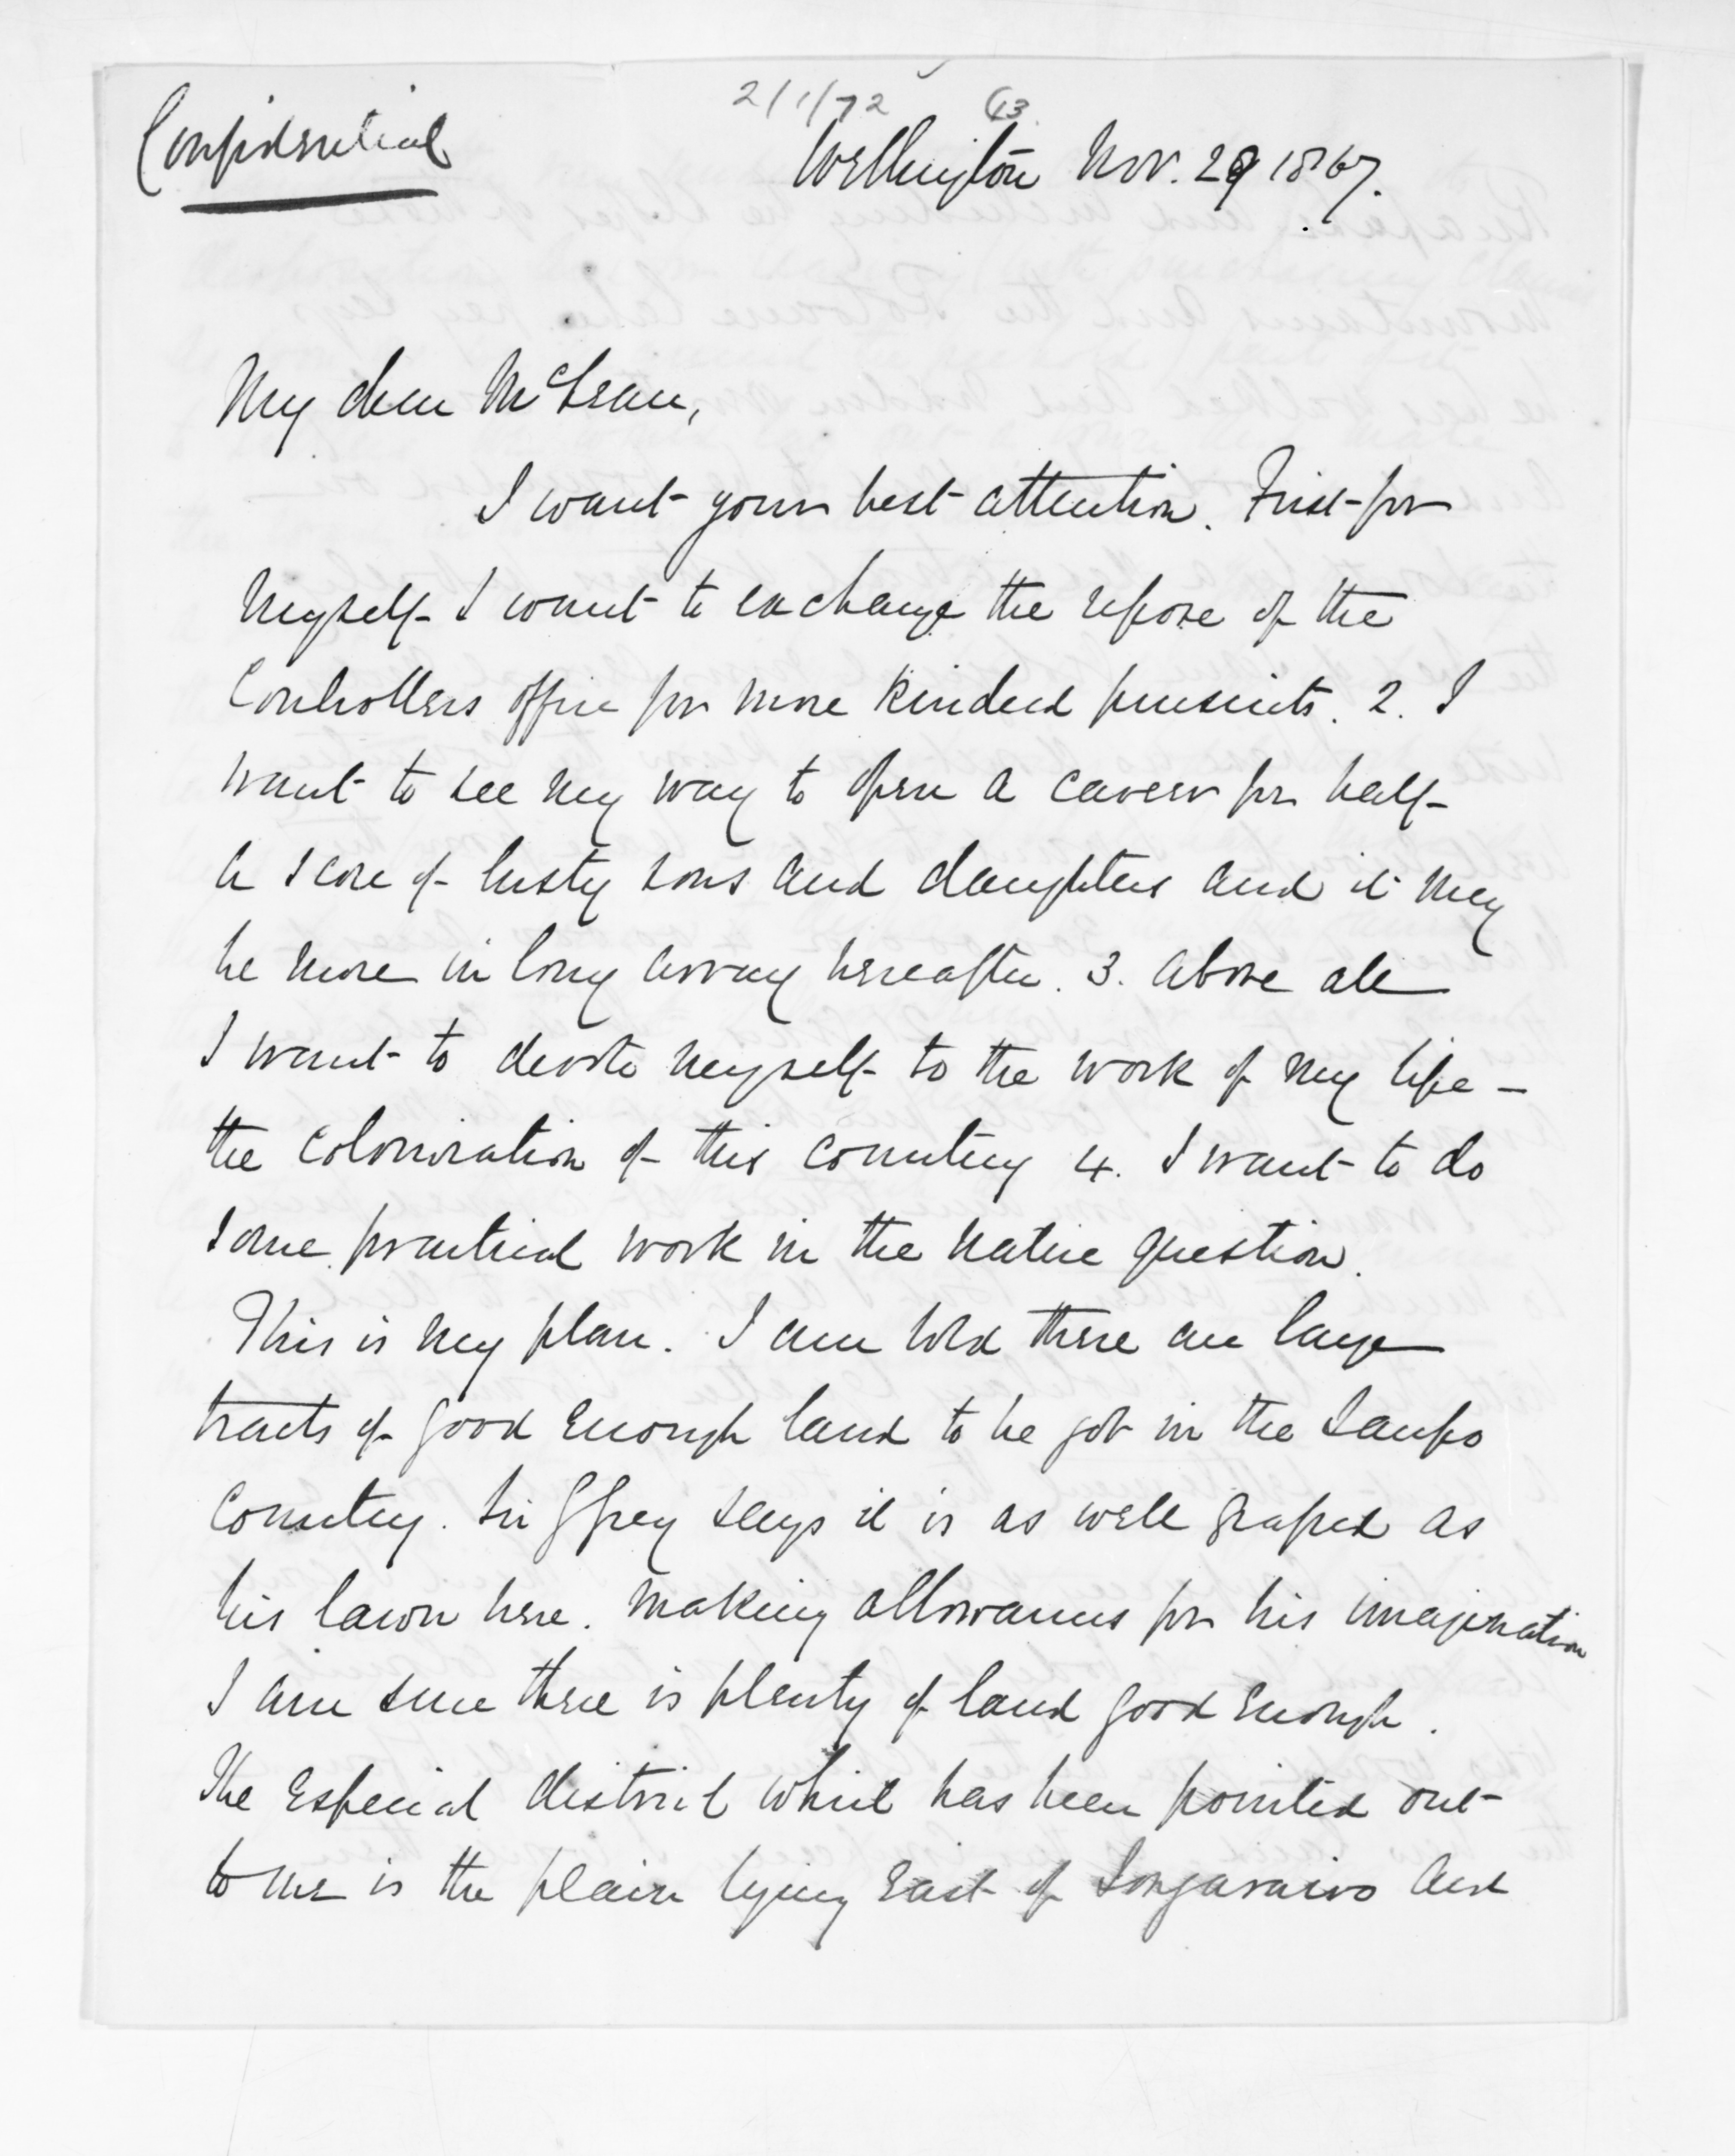 Confidential
2/1/72 63.
Wellington Nov. 29 1867.
My dear McLean,
I want your best attention. First for
myself I want to exchange the repose of the
Controllers office for more kindred pursuits. 2. I
want to see my way to open a career for half
a score of lusty sons and daughters and it may
be more in long array hereafter. 3. Above all
I want to devote myself to the work of my life –
the colonization of this country 4. I want to do
some practical work in the native question.
This is my plan. I am told there are large
tracts of good enough land to be got in the Taupo
Country. Sir G Grey says it is as well grassed as
his lawn here. Making allowances for his imagination
I am sure there is plenty of land good enough.
The especial district which has been pointed out
to me is the plain lying East of Tongariro and